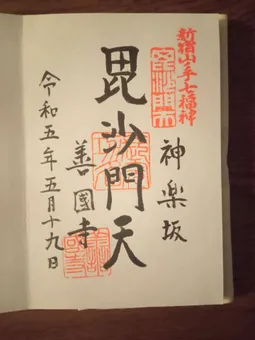 新宿山手七福神
神楽坂
毘沙門天
善國寺
令和五年五月十九日